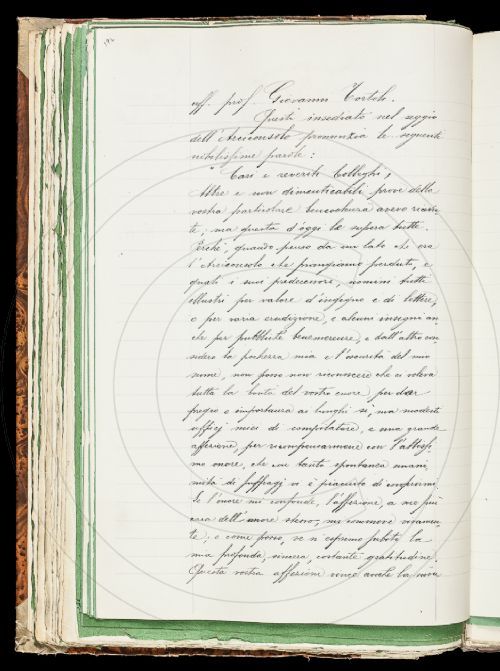 uff. prof. Giovanni Tortoli.
Questi insediato nel seggio
dell'Arciconsolo pronunzia le seguenti
nobilissime parole:
"Cari e reveriti Colleghi,
Altre e non dimenticabili prove della
vostra particolare benevolenza avevo ricevu-
te; ma questa d'oggi le supera tutte.
Perchè, quando penso da un lato chi era
l'Arciconsolo che piangiamo perduto, e
quali i suoi predecessori, uomini tutti
illustri per valore d'ingegno e di lettere,
e per varia erudizione, e alcuni insegni an-
che per pubbliche benemerenze, e dall'altro con-
sidero la pochezza mia e l'oscurità del mio
nome, non posso non riconoscere che ci voleva
tutta la bontà del vostro cuore per dar
pregio e importanza ai lunghi sì, ma modesti
uffici miei di compilatore, e una grande
affezione, per ricompensarmene con l'altissi-
mo onore, che con tanto spontanea unani-
mità di suffragi vi è piaciuto di conferirmi.
Se l'onore mi confonde, l'affezione, a me più
cara dell'onore stesso, mi commuove vivamen-
te; e come posso, ve n'esprimo subito la
mia profonda, sincera, costante gratitudine.
Questa vostra affezione vince anche la